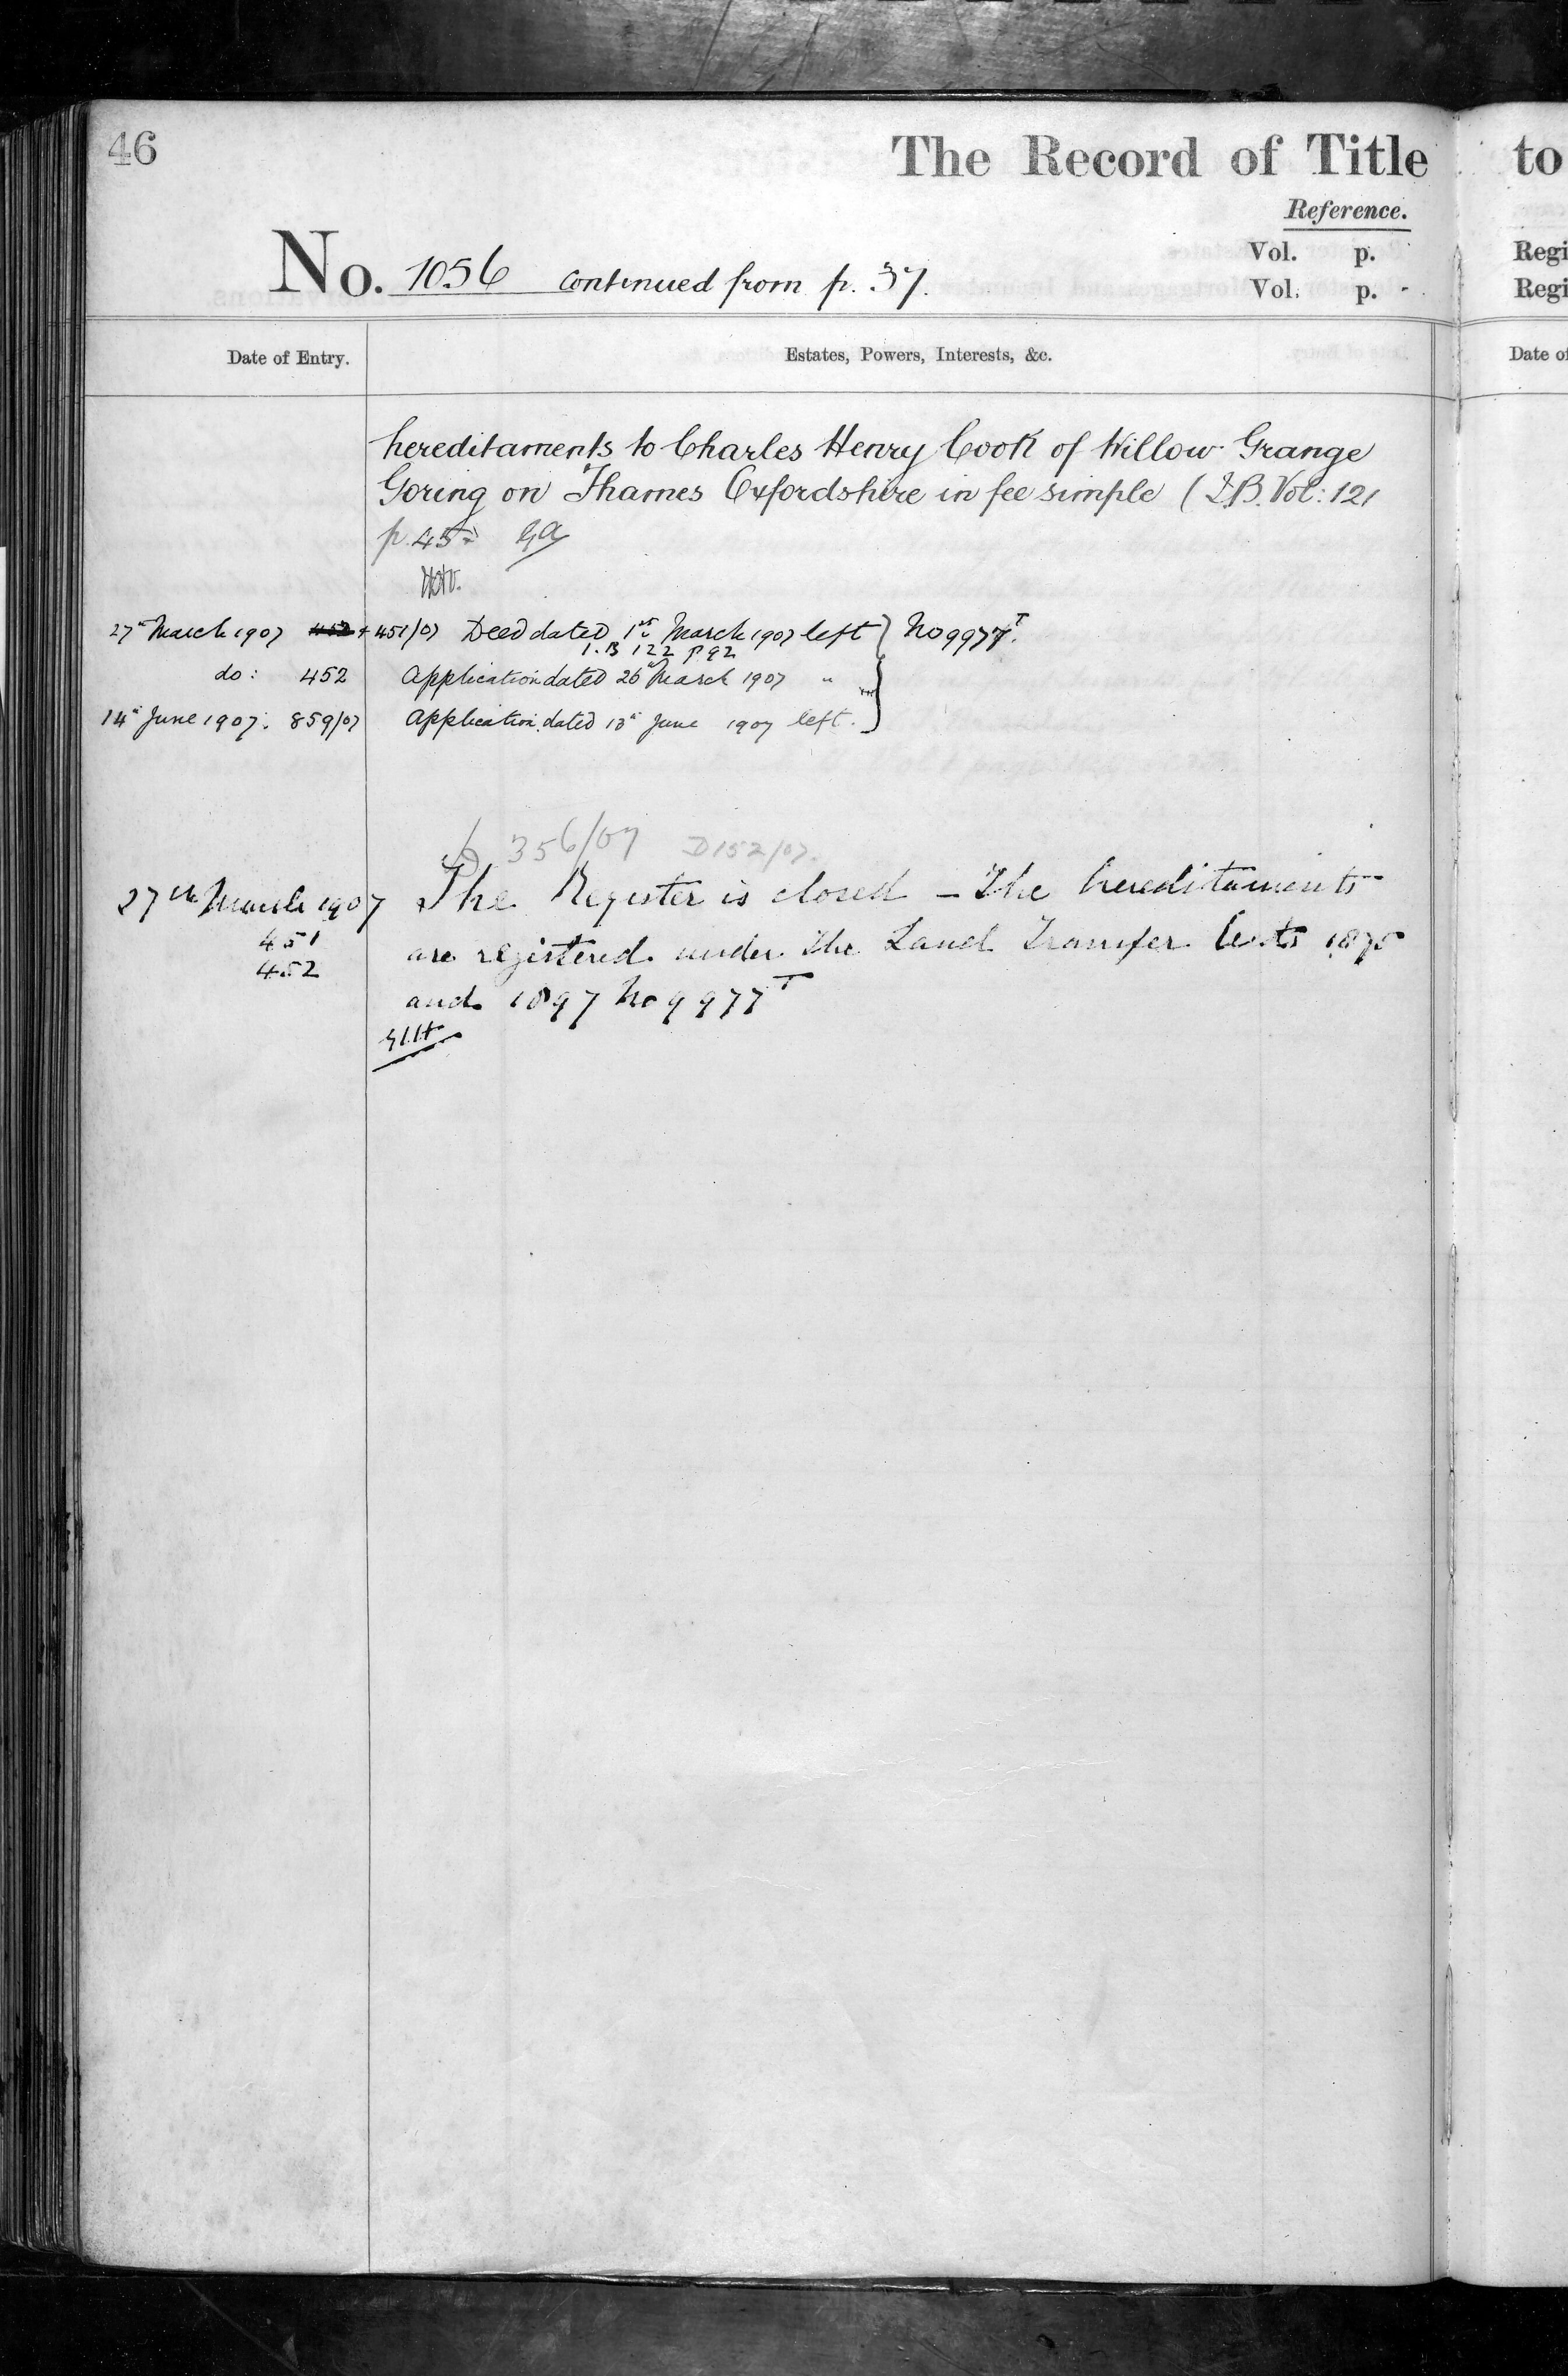 46
The Record of Title
to
Reference.
No. 1056 continued from p. 37.
Vol. p.
Vol. p.
Regi
Regi
Date of Entry.
Estates, Powers, Interests, &c.
Date of
hereditaments to Charles Henry Cook of Willow Grange
Goring on Thames Oxfordshire in fee simple (I.B. Vol: 121
p. 45
27th March 1907 451/07 Deed dated 1st March 1907 left } No 9977T.
I.B 122 p 92
do: 452 Application dated 26th March 1907 "
14th June 1907. 859/07 Application dated 13th June 1907 left.
356/07 D152/07.
27th March 1907 The Register is closed – The hereditaments
451 are registered under the Land Transfer Acts 1875
452
and 1897 No 9977T